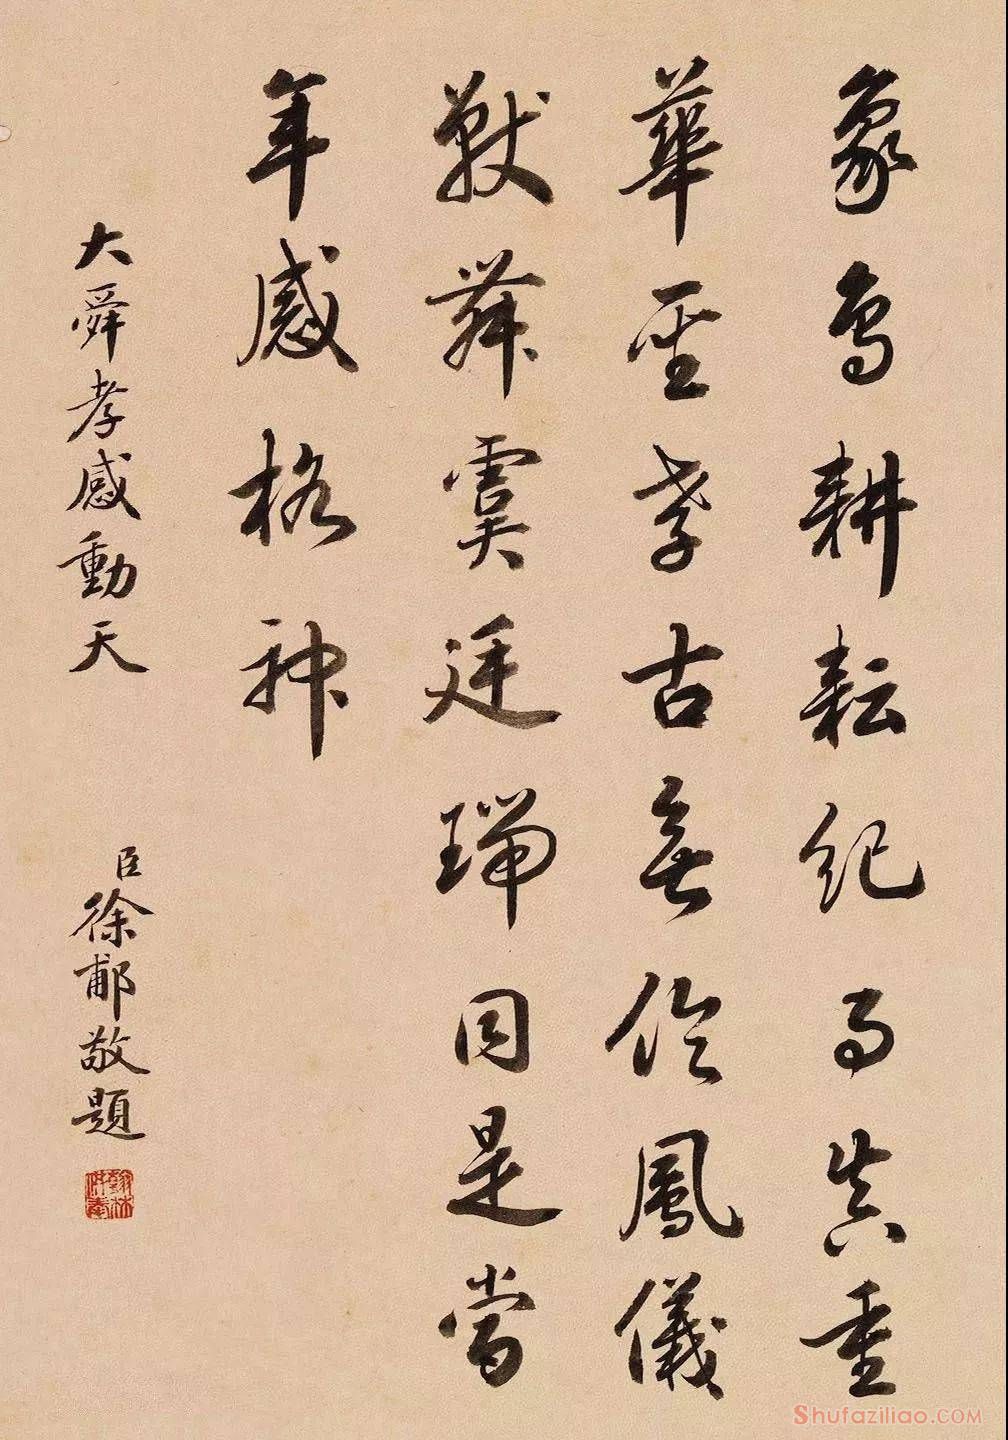 象鳥耕耘紀事真重
華至孝古無倫鳳儀
獸舞虞廷瑞同是當
年感格神
大舜孝感動天
臣徐郙敬題
翰林供奉
Shufaziliao.COM